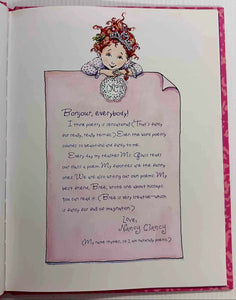 Bonjour, everybody!
I think poetry is sensational! (That's fancy
for really, really terrific.) Even the word poetry
sounds so beautiful and fancy to me.
Every day my teacher Ms. Glass reads
our class a poem. My favorites are the funny
ones. We are also writing our own poems. My
best friend, Bree, wrote one about You
can read it. (Bree is very creative—which
is fancy for imagination.)
Love,
Nancy Clancy
(My rhymes, so I am)